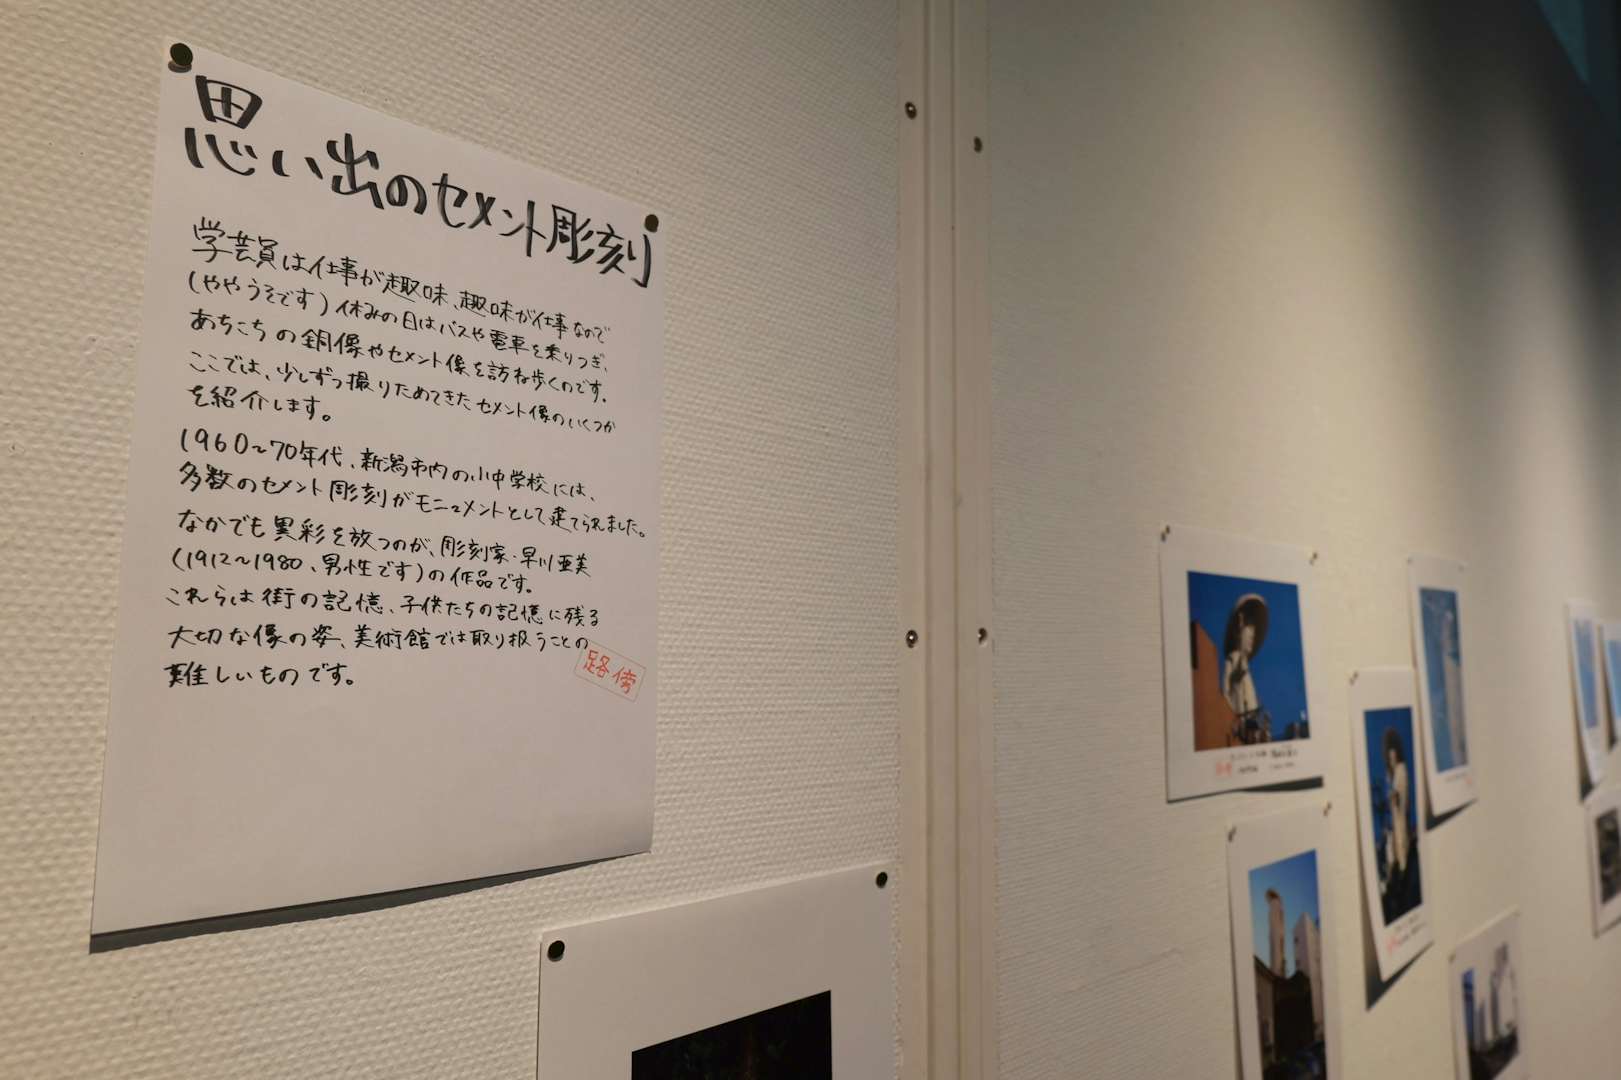 思い出のセメント彫刻
学芸員は仕事が趣味、趣味が仕事なので
(ややうそです)休みの日はバスや電車を乗りつぎ、
あちこちの銅像やセメント像を訪ね歩くのです。
ここでは、少しずつ撮りためてきたセメント像のいくつか
を紹介します。
1960~70年代、新潟市内の小中学校には、
多数のセメント彫刻がモニュメントとして建てられました。
なかでも異彩を放つのが、彫刻家・早川亜美
(1912~1980、男性です)の作品です。
これらは街の記憶、子供たちの記憶に残る
大切な像の姿、美術館では取り扱うことの
難しいものです。
路傍